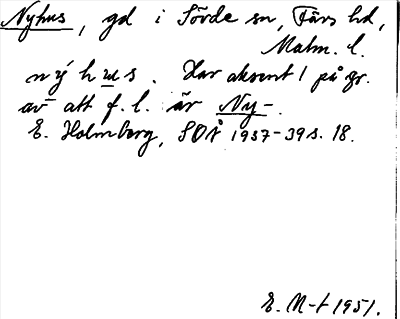 Nyhus, gd i Sövde sn, Färs hd,
Malm. l.
nýhus. Har aksent 1 på gr.
av att f. l. är Ny-.
E. Holmberg, SOÅ 1937-39 s. 18.
E. M-t 1951.